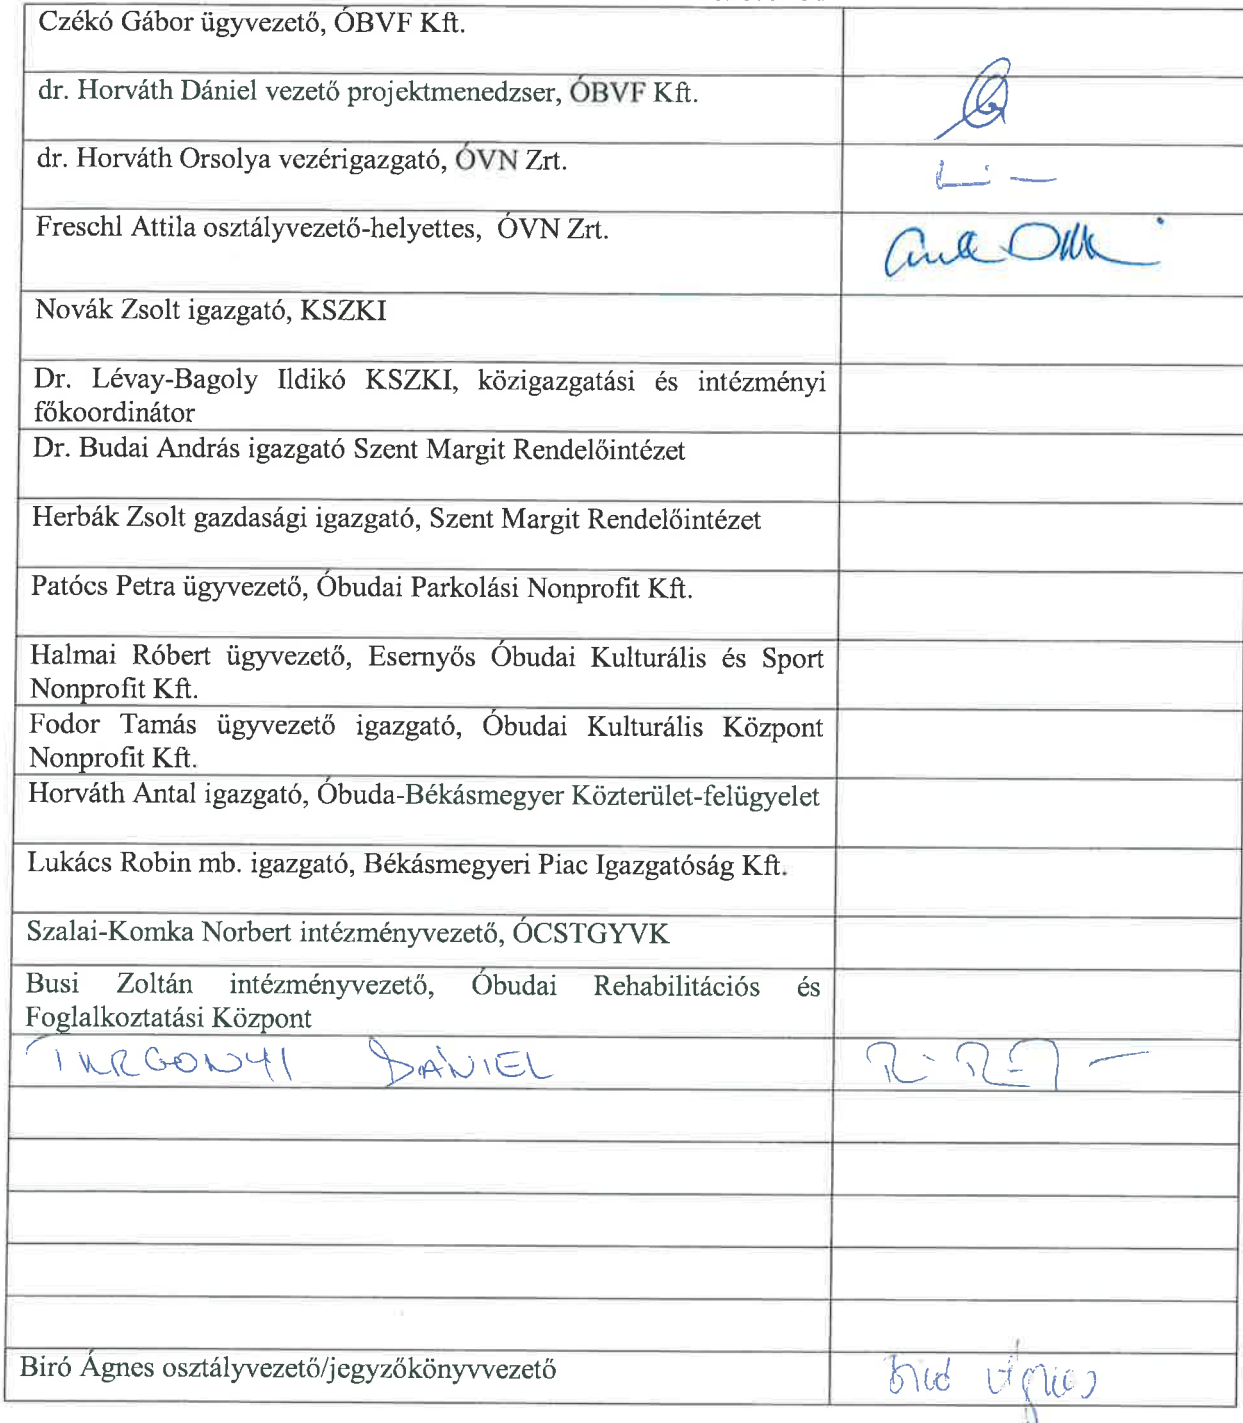 Czékó Gábor ügyvezető, ÓBVF Kft.
dr. Horváth Dániel vezető projektmenedzser, ÓBVF Kft.
dr. Horváth Orsolya vezérigazgató, ÓVN Zrt.
Freschl Attila osztályvezető-helyettes, ÓVN Zrt.
Novák Zsolt igazgató, KSZKI
Dr. Lévay-Bagoly Ildikó KSZKI, közigazgatási és intézményi
főkoordinátor
Dr. Budai András igazgató Szent Margit Rendelőintézet
Herbák Zsolt gazdasági igazgató, Szent Margit Rendelőintézet
Patócs Petra ügyvezető, Óbudai Parkolási Nonprofit Kft.
Halmai Róbert ügyvezető, Esernyős Óbudai Kulturális és Sport
Nonprofit Kft.
Fodor Tamás ügyvezető igazgató, Óbudai Kulturális Központ
Nonprofit Kft.
Horváth Antal igazgató, Óbuda-Békásmegyer Közterület-felügyelet
Lukács Robin mb. igazgató, Békásmegyeri Piac Igazgatóság Kft.
Szalai-Komka Norbert intézményvezető, ÓCSTGYVK
Busi Zoltán intézményvezető, Óbudai Rehabilitációs és
Foglalkoztatási Központ
TURGONYI DÁNIEL
Biró Ágnes osztályvezető/jegyzőkönyvvezető Biró Ágnes